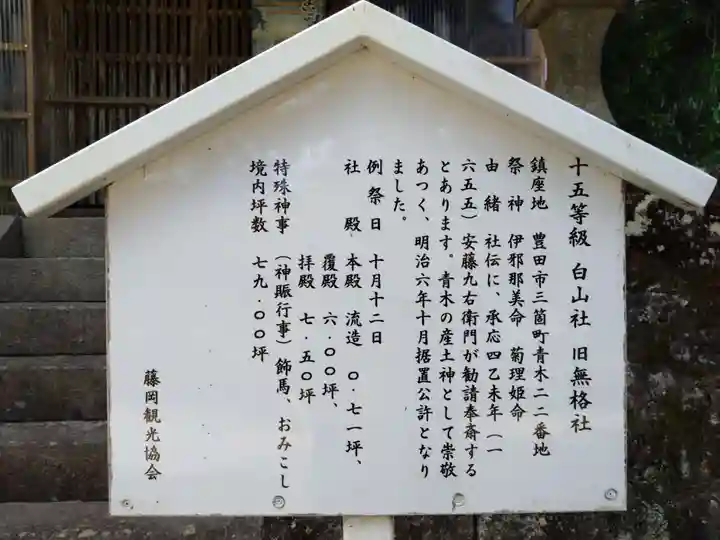 十五等級 白山社 旧無格社
鎮座地 豊田市三箇町青木二二番地
祭神 伊邪那美命 菊理姫命
由緒 社伝に、承応四乙未年(一
六五五)安藤九右衛門が勧請奉斎する
とあります。青木の産土神として崇敬
あつく、明治六年十月据置公許となり
ました。
例祭日 十月十二日
社殿 本殿 流造 〇・七一坪、
覆殿 六・〇〇坪、
拝殿 七・五〇坪
特殊神事 (神賑行事)飾馬、おみこし
境内坪数 七九・〇〇坪
藤岡観光協会